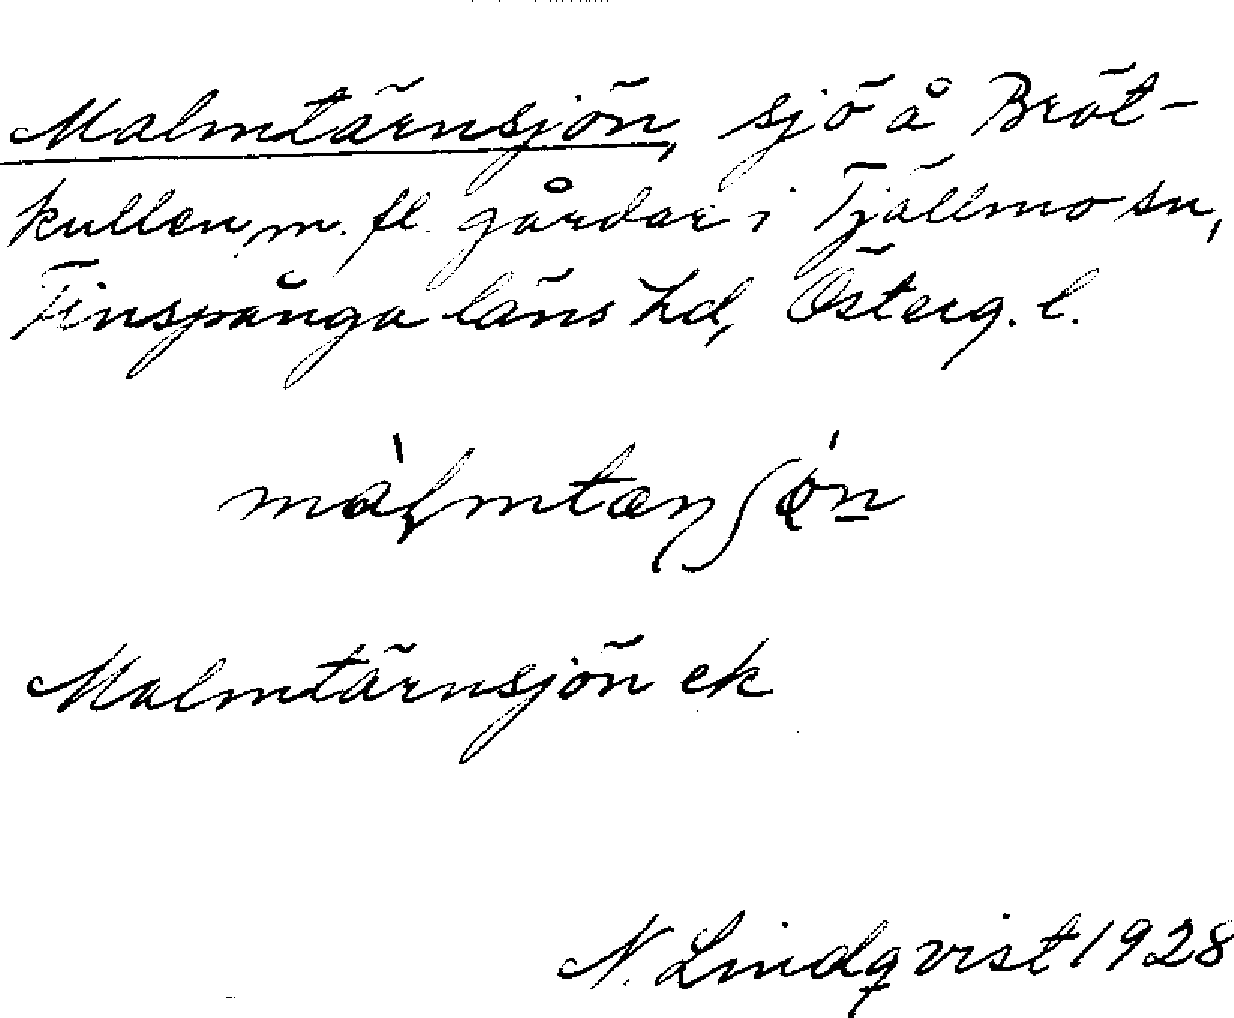 Malmtärnsjön, sjö å Bröt-
kullen m. fl. gårdar i Tjällmo sn,
Finspånga läns hd, Österg. l.
Malmtärnsjön ek
N. Lindqvist 1928